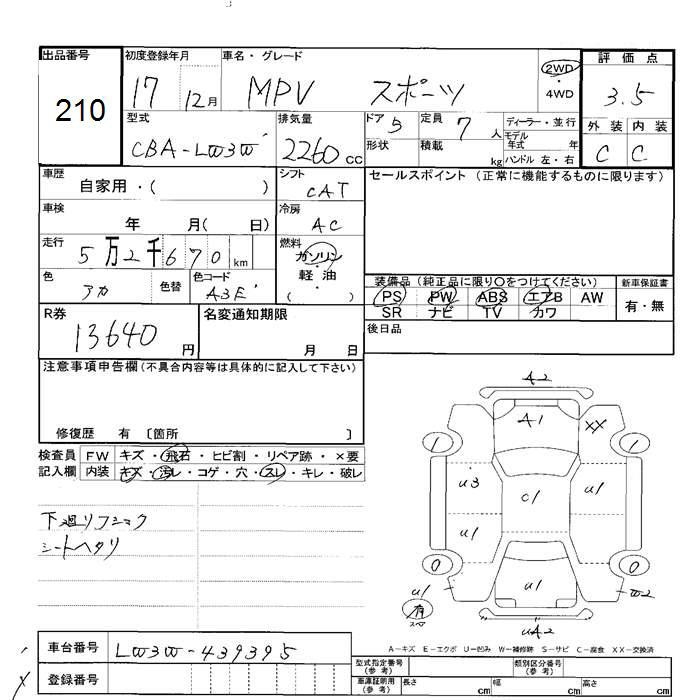 出品番号
210
初度登録年月
17 12月
車名・グレード
MPV スポーツ
2WD
・
4WD
評価点
3.5
外装 内装
C C
型式
CBA-LW3W
排気量
2260 cc
ドア 5
形状
定員 7 人
積載 kg
ディーラー・並行
モデル
年式 年
ハンドル 左・右
車歴
自家用・( )
シフト
CAT
セールスポイント (正常に機能するものに限ります)
車検
年 月( 日)
冷房
AC
走行
5万2千670 km
燃料
ガソリン
・
軽油
( )
色
アカ
色替
色コード
A3E
装備品 (純正品に限り○をつけてください)
PS PW ABS エアB AW
SR ナビ TV カワ
新車保証書
有・無
R券
13640 円
名変通知期限
月 日
後日品
注意事項申告欄(不具合内容等は具体的に記入して下さい)
修復歴 有 〔箇所 〕
検査員
記入欄
FW キズ・飛石・ヒビ割・リペア跡・×要
内装 キズ・汚レ・コゲ・穴・スレ・キレ・破レ
下廻リフショク
シートヘタリ
A2
A1
XX
1
1
U3
C1
U1
U1
0
0
U1
U1
W2
有
スペ
UA2
A-キズ E-エクボ U-凹み W-補修跡 S-サビ C-腐食 XX-交換済
車台番号
LW3W-439395
登録番号
型式指定番号
(参考)
類別区分番号
(参考)
車庫証明用
(参考)
長さ cm
幅 cm
高さ cm